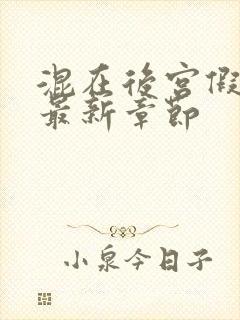 混在後宮假
最新章節
小泉今日子